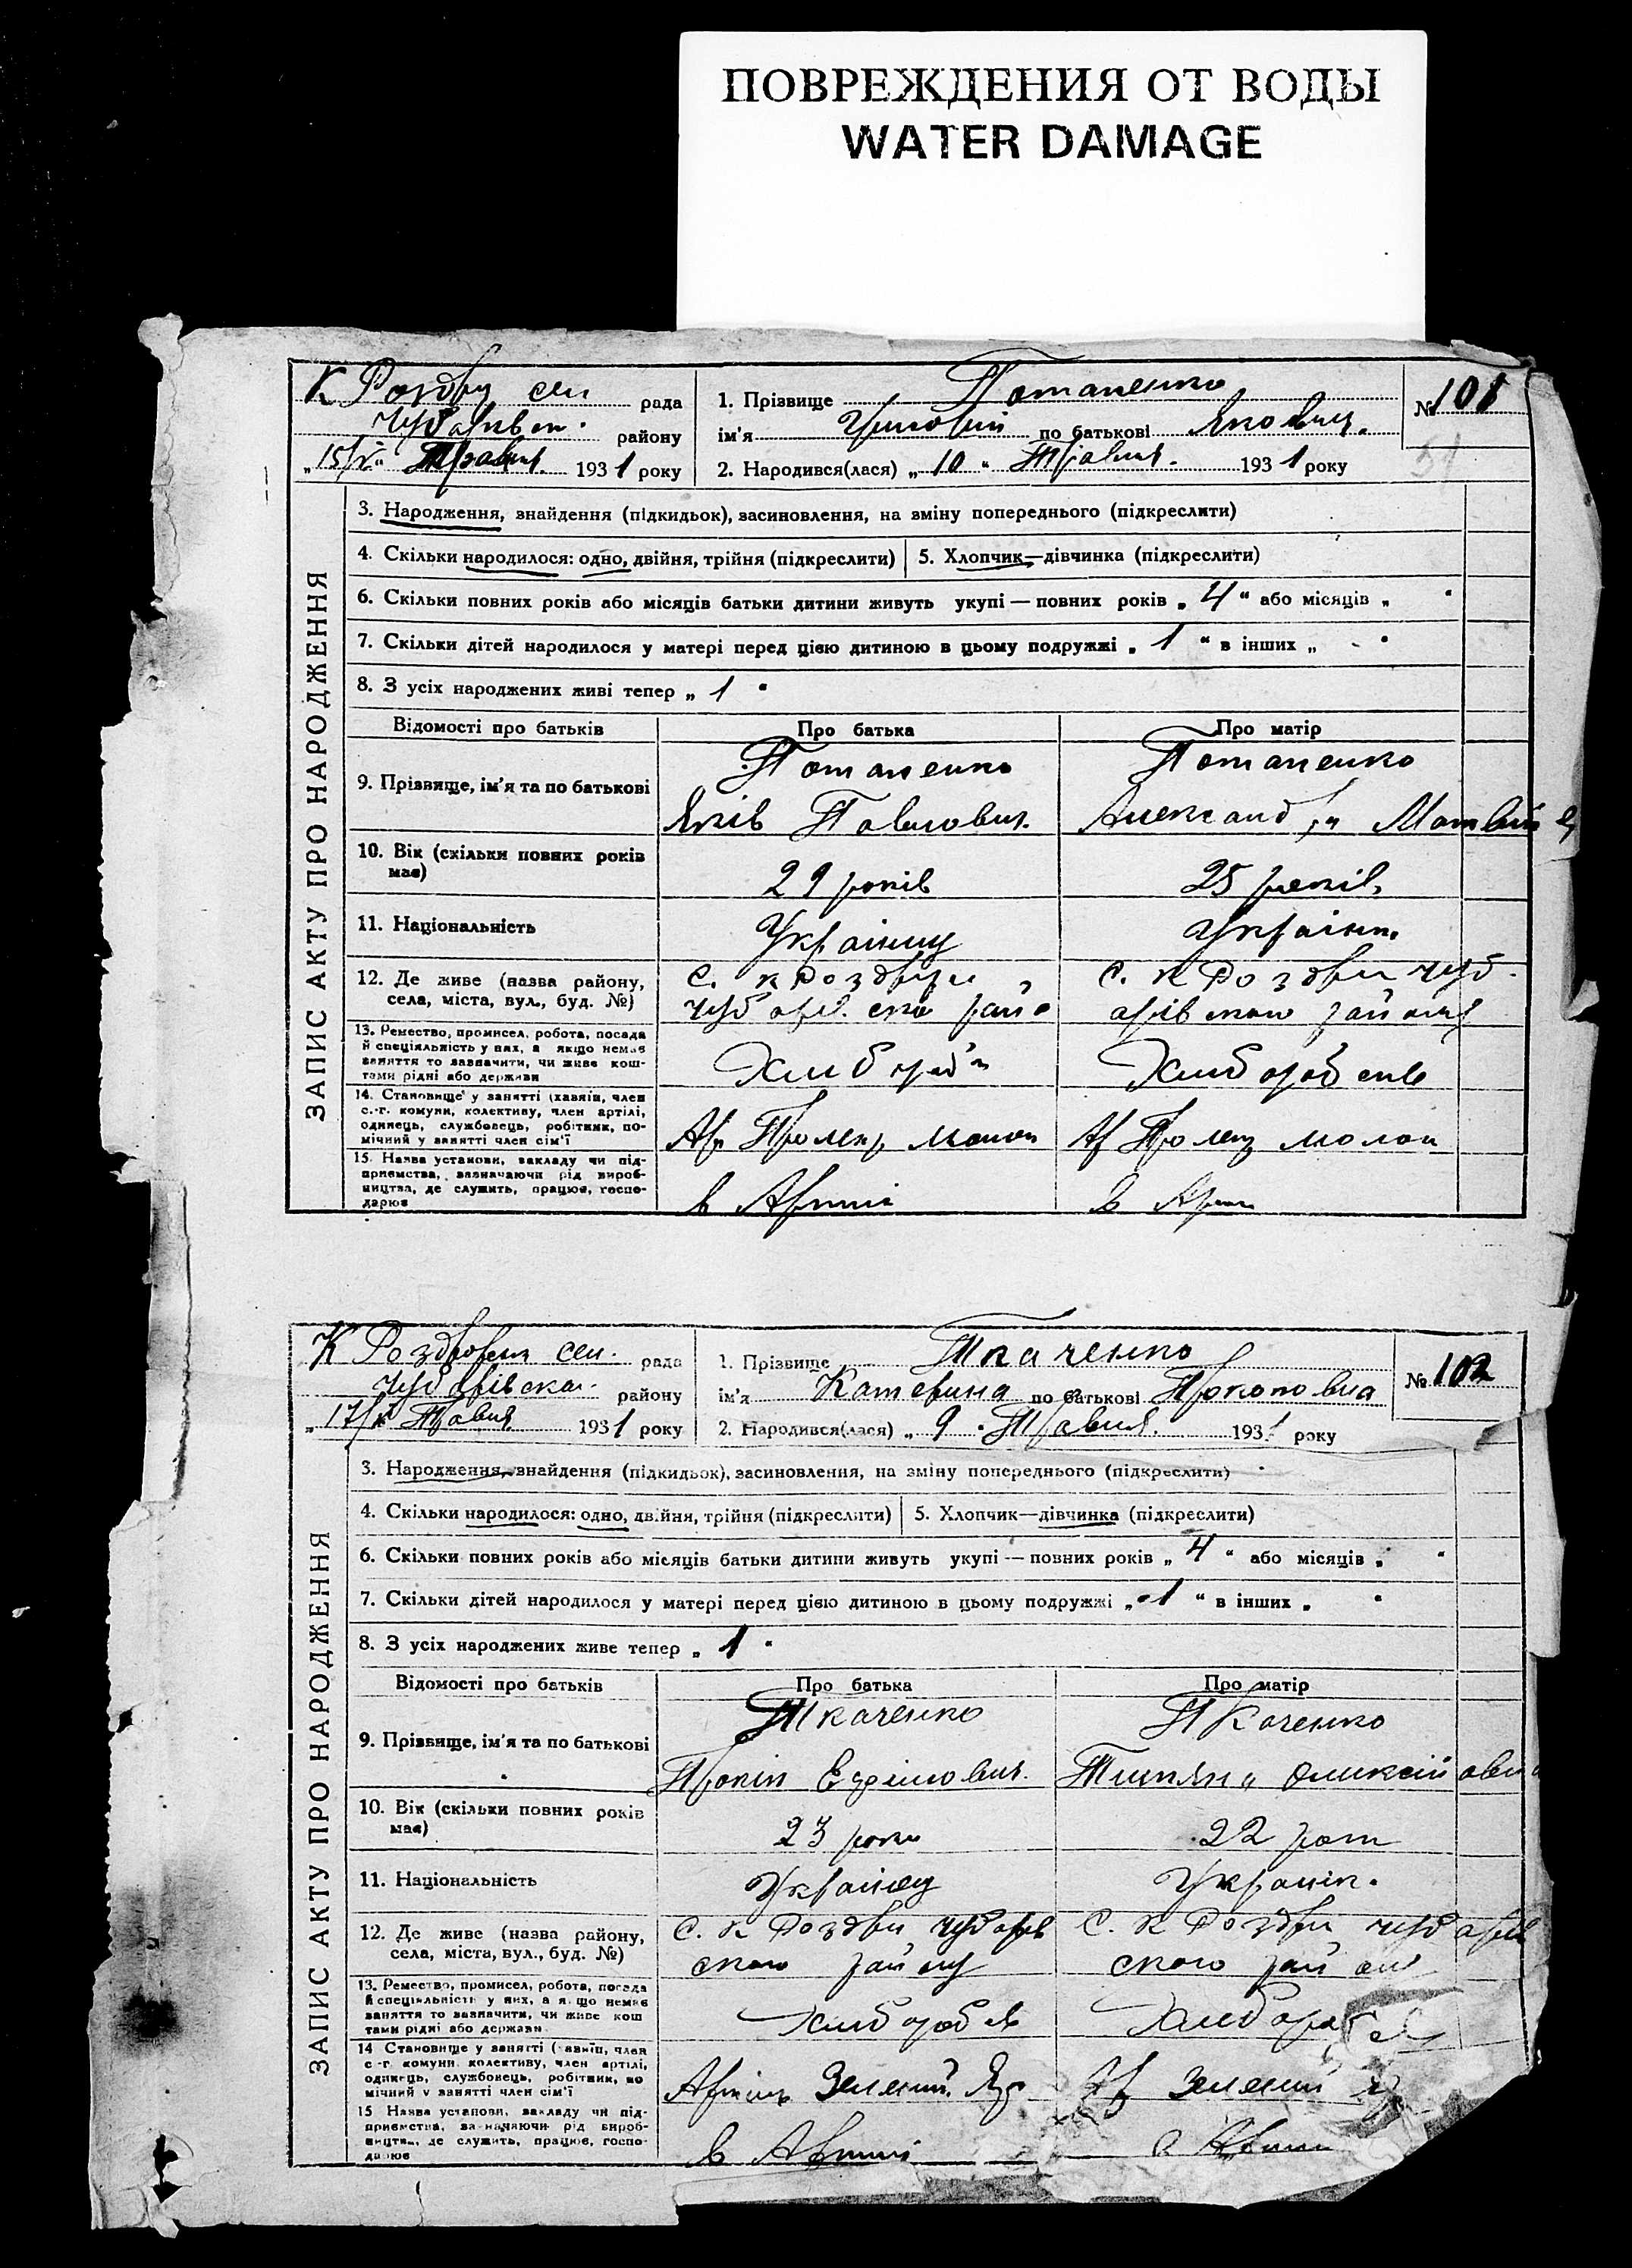 ПОВРЕЖДЕНИЯ ОТ ВОДЫ
WATER DAMAGE
К сел рада
району
"15/V" Травня 1931 року
1. Прізвище Потапенко
ім'я по батькові Якович.
2. Народився(лася) „ 10 “ Травня. 1931 року
№ 101
51
ЗАПИС АКТУ ПРО НАРОДЖЕННЯ
3. Народження, знайдення (підкидьок), засиновлення, на зміну попереднього (підкреслити)
4. Скільки народилося: одно, двійня, трійня (підкреслити) 5. Хлопчик—дівчинка (підкреслити)
6. Скільки повних років або місяців батьки дитини живуть укупі — повних років „ 4 “ або місяців „ “
7. Скільки дітей народилося у матері перед цією дитиною в цьому подружжі „ 1 “ в інших „ - “
8. З усіх народжених живі тепер „ 1 “
Відомості про батьків Про батька Про матір
9. Прізвище, ім'я та по батькові
Потапенко Потапенко
Яків Павлович.
10. Вік (скільки повних років має)
29 років 25 років
11. Національність
Українц
12. Де живе (назва району,
села, міста, вул., буд. №)
с. К Роздори
с. К Роздри чуб
арівского району
13. Ремество, промисел, робота, посада
й спеціяльність у них, а якщо немає
заняття то зазначити, чи живе кош-
тами рідні або держави
14. Становище у занятті (хазяїн, член
с.-г. комуни, колективу, член артілі,
одинець, службовець, робітник, по-
мічний у занятті член сім'ї
15. Назва установи, закладу чи під-
приємства, зазначаючи рід вироб-
ництва, де служить, працює, госпо-
дарює
в Артілі
К сел. рада
Чубарівска району
„ 17/V Травня 1931 року
1. Прізвище Ткаченко
ім'я Катерина по батькові Прокоповна
2. Народився(лася) „ 9 “ Травня. 1931 року
№ 102
ЗАПИС АКТУ ПРО НАРОДЖЕННЯ
3. Народження, знайдення (підкидьок), засиновлення, на зміну попереднього (підкреслити)
4. Скільки народилося: одно, двійня, трійня (підкреслити) 5. Хлопчик—дівчинка (підкреслити)
6. Скільки повних років або місяців батьки дитини живуть укупі — повних років „ 4 “ або місяців „ “
7. Скільки дітей народилося у матері перед цією дитиною в цьому подружжі „ 1 “ в інших „ “
8. З усіх народжених живе тепер „ 1 “
Відомості про батьків Про батька Про матір
9. Прізвище, ім'я та по батькові
Ткаченко Ткаченко
Прокіп Олексійовна
10. Вік (скільки повних років має)
23 роки 22 рот
11. Національність
Українц Українк.
12. Де живе (назва району,
села, міста, вул., буд. №)
с. К Роздри чубарів
ского району
с. К Роздри чубарів
ского району
13. Ремество, промисел, робота, посада
й спеціяльність у них, а якщо немає
заняття то зазначити, чи живе кош
тами рідні або держави.
14 Становище у занятті (хазяїн, член
с-г. комуни, колективу, член артілі,
одинець, службовець, робітник, по
мічний у занятті член сім'ї
Зелений Яр
Зелений
15 Назва установи, закладу чи під-
приємства, зазначаючи рід вироб-
ництва, де служить, працює, госпо-
дарює
в Артілі